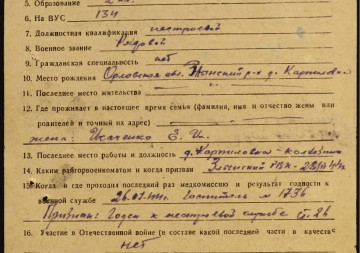 5. Образование
6. На ВУС 134
7. Должностная квалификация нестроевой
8. Военное звание Рядовой
9. Гражданская специальность нет
10. Место рождения Орловская обл. р-н д. Карпиловка
11. Последнее место жительства
12. Где проживает в настоящее время семья (фамилия, имя и отчество жены или
родителей и точный их адрес)
жена: Исаченко Е. И.
13. Последнее место работы и должность д. Карпиловка - колхозник
14. Каким райгорвоенкоматом и когда призван РВК -
15. Когда и где проходил последний раз медкомиссию и результат годности к
военной службе 26.01.44г. Госпиталь № 1736
Признан: Годен к нестроевой службе ст. 26
16. Участие в Отечественной войне (в составе какой последней части в качестве
нет